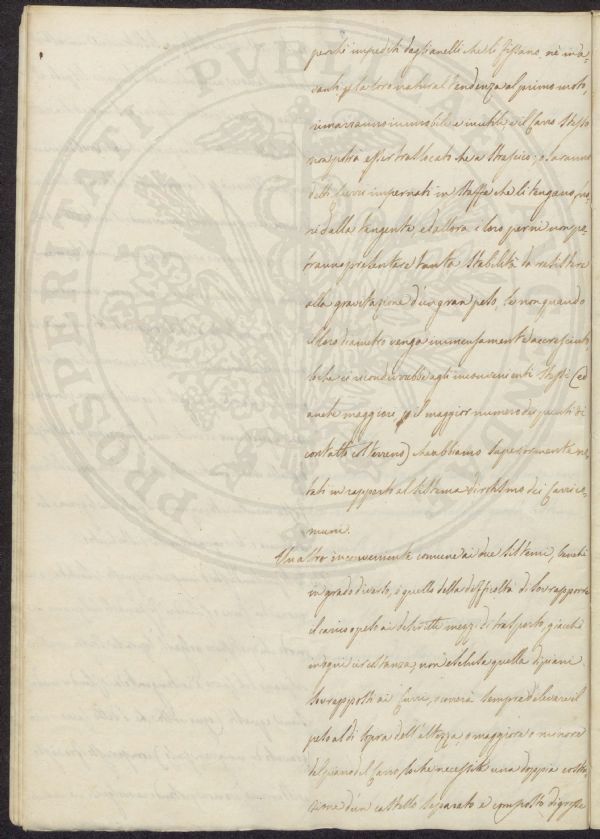 perché impediti dagli anelli che li fissano, nè gira-
ranti p la loro natural tendenza al primo moto,
rimarranno immobili e inutili, e il Carro stesso
non potrà esser traslocato che a strascico; o saranno
detti Curri impernati in staffe che li tengano fuo-
ri dalla tangente, ed allora i loro perni non po-
tranno presentare tanta stabilità da resistere
alla gravitazione d'un gran peso, se non quando
il loro diametro venga immensamente accresciuto,
lo che ci ricondurrebbe agli inconvenienti stessi (ed
anche maggiori p il maggior numero dei punti di
contatto col terreno) che abbiamo superiormente no-
tati in rapporto al sistema di rotismo dei Carri co-
muni.
Un altro inconveniente comune ai due sistemi,
in grado diverso, è quello della difficoltà di sovrapporre
il carico o peso ai descritti mezzi di trasporto, giacché
in ogni circostanza, non esclusa quella di piani
sovrapposti ai Curri, converrà sempre di elevare il
peso al di sopra dell'altezza, o maggiore o minore
del piano del Carro, lo che necessita una doppia costru-
zione d'un castello separato e composto di grosse